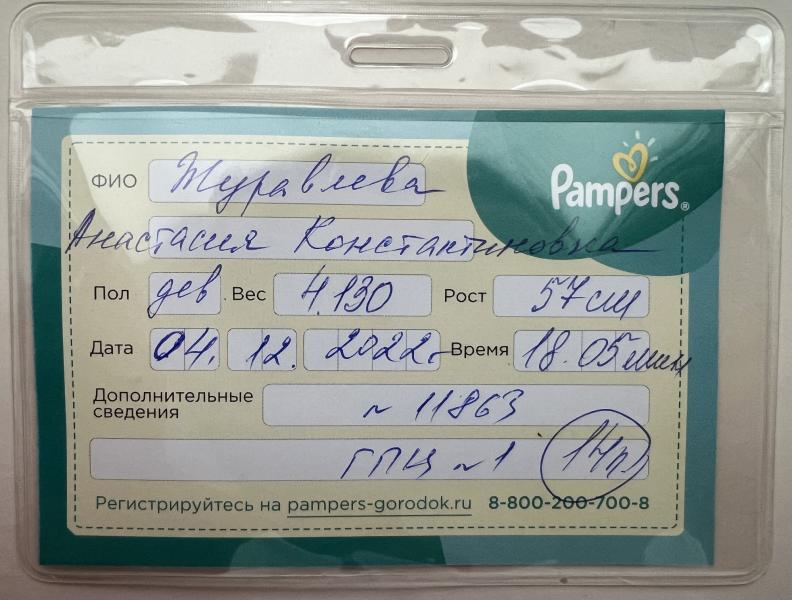 Pampers®
ФИО Журавлева
Анастасия Константиновна
Пол дев Вес 4.130 Рост 57 см
Дата 04. 12. 2022 Время 18.05 мин
Дополнительные
сведения ~ 11863
ГПЦ ~1
Регистрируйтесь на pampers-gorodok.ru 8-800-200-700-8